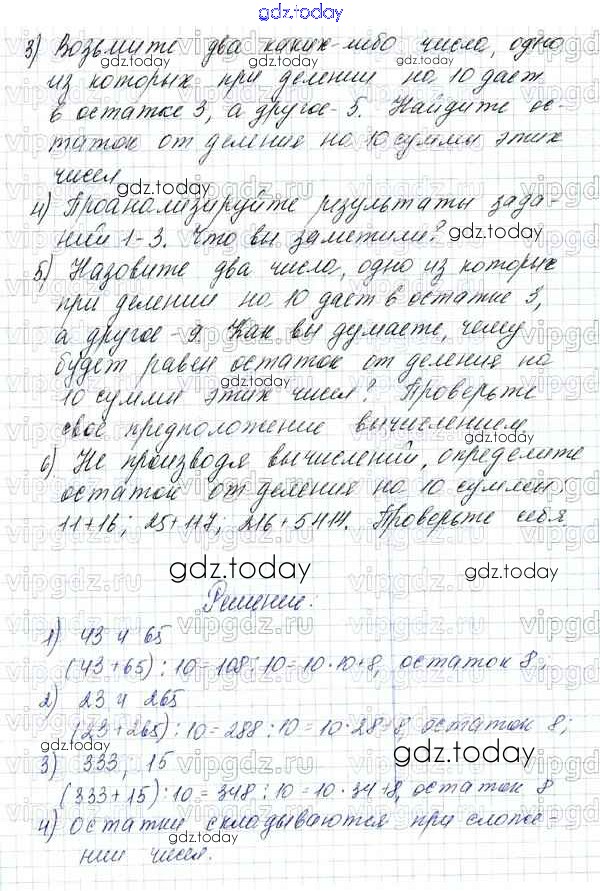 gdz.today
3) Возьмите два каких-либо числа, одно
из которых при делении на 10 дает
в остатке 3, а другое - 5. Найдите ос-
таток от деления на 10 суммы этих
чисел
gdz.today
4) Проанализируйте результаты зада-
ний 1-3. Что вы заметили? gdz.today
5) Назовите два числа, одно из которых
при делении на 10 дает в остатке 3,
а другое - 9. Как вы думаете, чему
будет равен остаток от деления на
10 суммы этих чисел? Проверьте
свое предположение вычислением.
6) Не производя вычислений, определите
остаток от деления на 10 суммы:
11+16; 25+117; 216+5414. Проверьте себя
gdz.today gdz.today
Решение:
1) 43 и 65
(43+65):10=108:10=10·10+8, остаток 8;
2) 23 и 265
(23+265):10=288:10=10·28+8, остаток 8;
gdz.today gdz.today
3) 333; 15
(333+15):10=348:10=10·34+8, остаток 8
4) остатки складываются при сложе-
нии чисел.